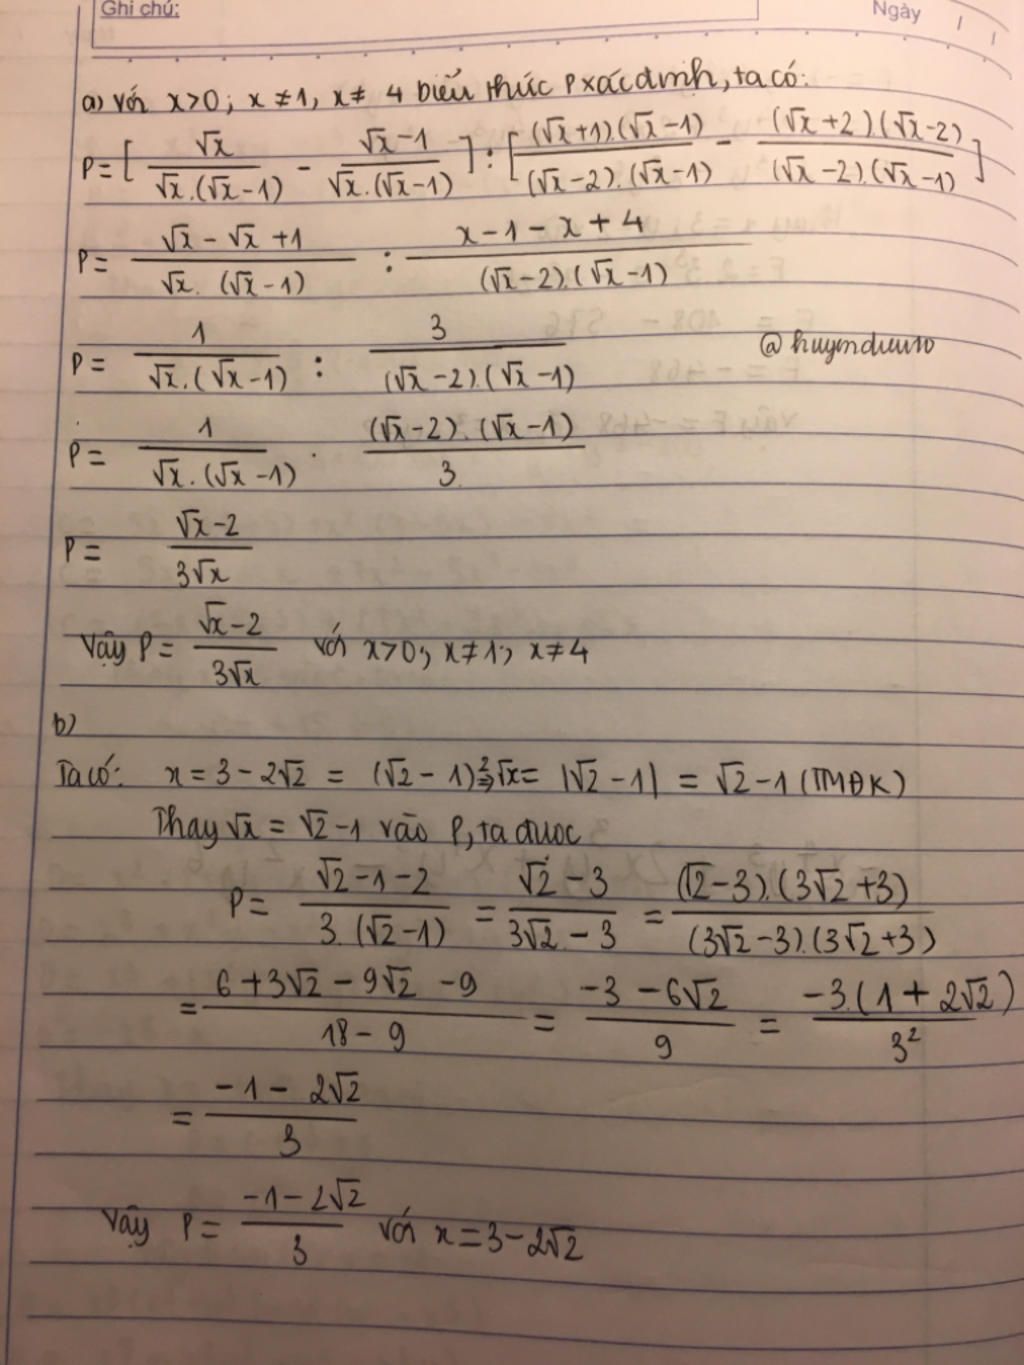 Ghi chú:
Ngày / /
a) Với x>0; x ≠ 1, x ≠ 4 biểu thức P xác định, ta có:
P = [ √x / √x.(√x-1) - √x-1 / √x.(√x-1) ] : [ (√x+1).(√x-1) / (√x-2).(√x-1) - (√x+2).(√x-2) / (√x-2).(√x-1) ]
P = √x - √x + 1 / √x. (√x-1) : x-1-x+4 / (√x-2).(√x-1)
P = 1 / √x.(√x-1) : 3 / (√x-2).(√x-1)
@huyndiuu10
P = 1 / √x.(√x-1) . (√x-2).(√x-1) / 3
P = √x-2 / 3√x
Vậy P = √x-2 / 3√x với x>0; x≠1; x≠4
b)
Ta có: x = 3-2√2 = (√2-1)² ⇒ √x = |√2-1| = √2-1 (TMĐK)
Thay √x = √2-1 vào P, ta được
P = √2-1-2 / 3.(√2-1) = √2-3 / 3√2-3 = (√2-3).(3√2+3) / (3√2-3).(3√2+3)
= 6+3√2-9√2-9 / 18-9 = -3-6√2 / 9 = -3.(1+2√2) / 3²
= -1-2√2 / 3
Vậy P = -1-2√2 / 3 với x = 3-2√2